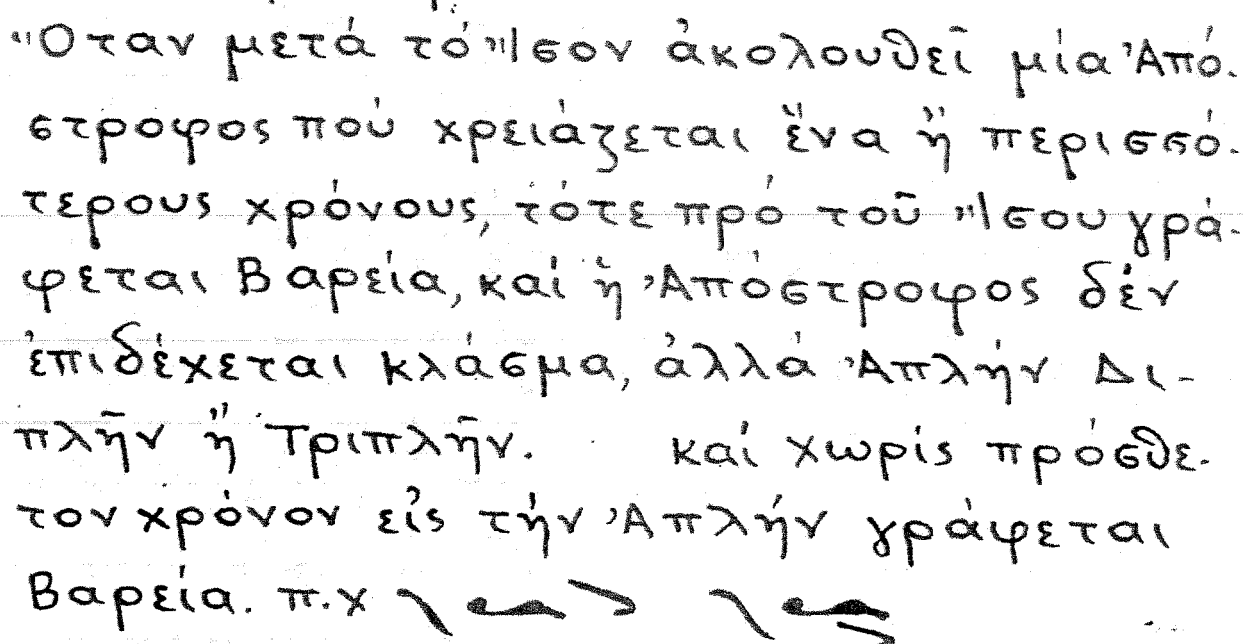 Ὅταν μετά τό Ἴσον ἀκολουθεῖ μία Ἀπό-
στροφος πού χρειάζεται ἕνα ἤ περισσό-
τερους χρόνους, τότε πρό τοῦ Ἴσου γρά-
φεται Βαρεία, καί ἡ Ἀπόστροφος δέν
ἐπιδέχεται κλάσμα, ἀλλά Ἀπλήν Δι-
πλῆν ἤ Τριπλῆν. καί χωρίς πρόσθε-
τον χρόνον εἰς τήν Ἀπλήν γράφεται
Βαρεία. π.χ